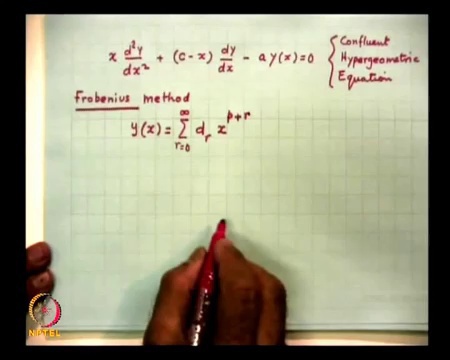 x d²y/dx² + (c-x) dy/dx - a y(x) = 0 { Confluent Hypergeometric Equation
Frobenius method
y(x) = ∑_{r=0}^{∞} d_r x^{p+r}
NPTEL